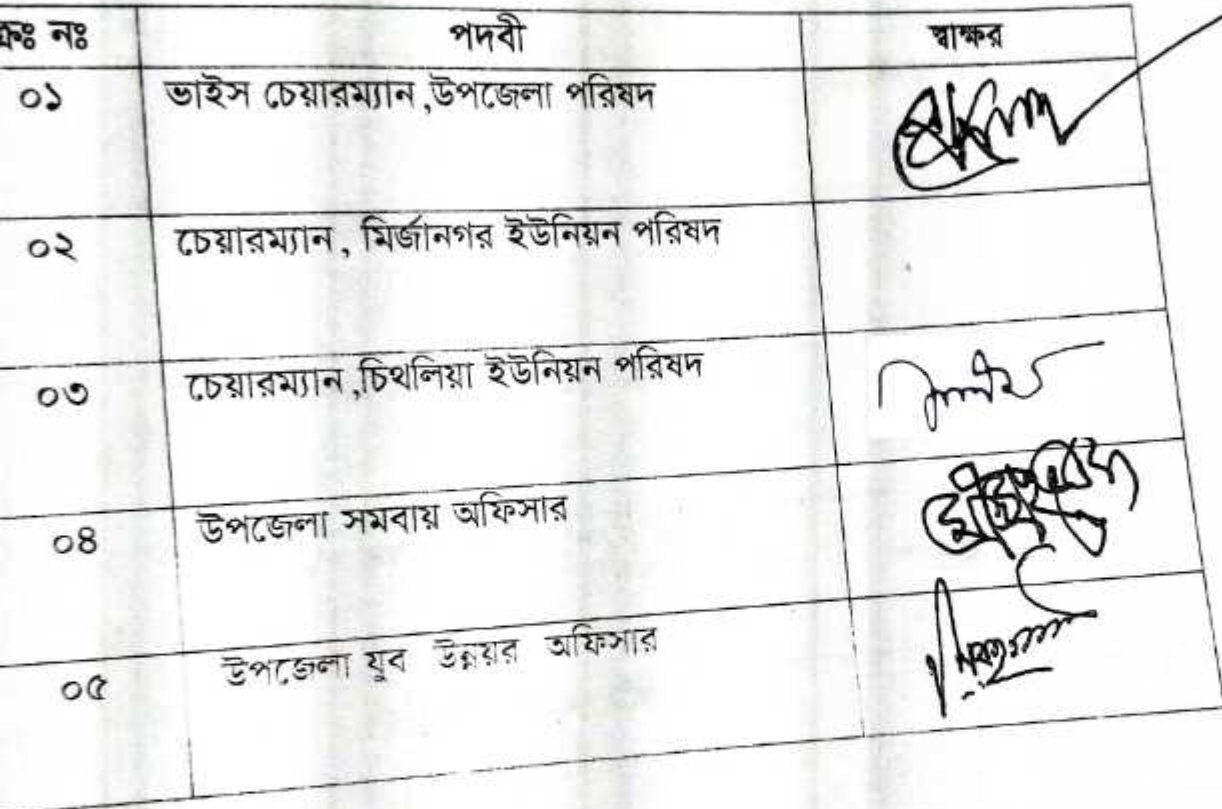 ক্রঃ নঃ পদবী স্বাক্ষর
০১ ভাইস চেয়ারম্যান,উপজেলা পরিষদ
০২ চেয়ারম্যান, মির্জানগর ইউনিয়ন পরিষদ
০৩ চেয়ারম্যান,চিথলিয়া ইউনিয়ন পরিষদ
০৪ উপজেলা সমবায় অফিসার
০৫ উপজেলা যুব উন্নয়র অফিসার